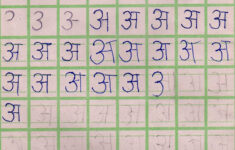 अ अ अ अ अ
अ अ अ अ अ अ अ अ
अ अ अ अ अ
अ